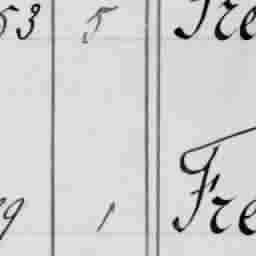 53 5 Fre
9 1 Fre